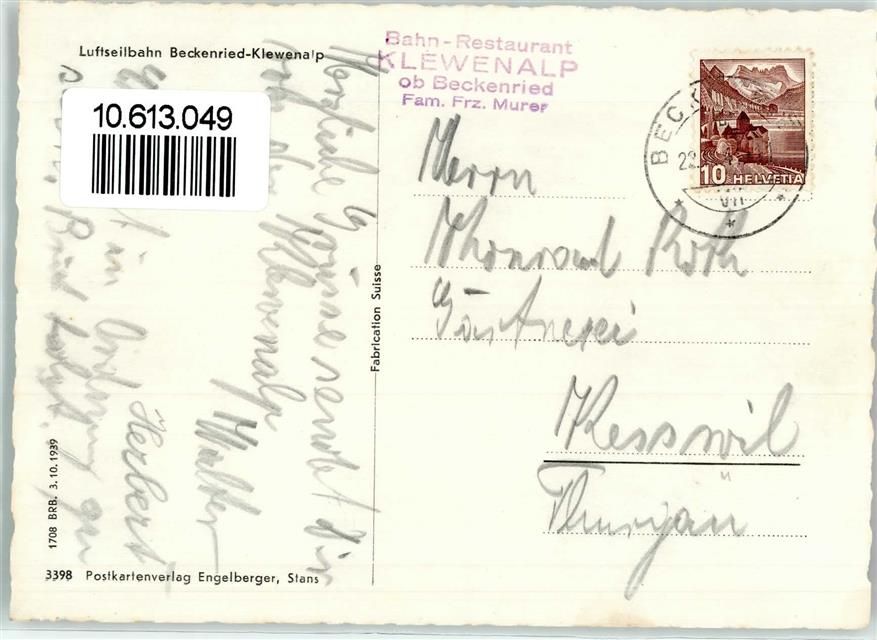 Luftseilbahn Beckenried-Klewenalp
10.613.049
Bahn-Restaurant
KLEWENALP
ob Beckenried
Fam. Frz. Murer
BECK
22.
VII
10 HELVETIA
Herrn
Konrad Roth
Gärtnerei
Kesswil
Thurgau
Herzliche Grüsse sendet dir
von der Klewenalp
Walter
Herbert
in Ordnung zu
Bind
Fabrication Suisse
1708 BRB. 3.10.1939
3398 Postkartenverlag Engelberger, Stans